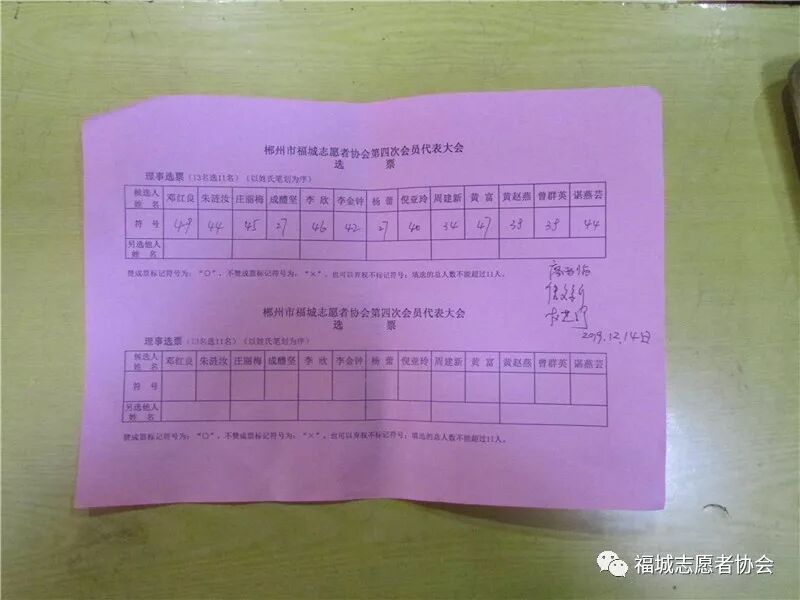 郴州市福城志愿者协会第四次会员代表大会
选 票
理事选票（13名选11名）（以姓氏笔划为序）
候选人姓名 邓红良 朱涟汝 庄丽梅 成醴坚 李欣 李金钟 杨蕾 倪亚玲 周建新 黄富 黄赵燕 曾群英 谌燕芸
符号 49 44 45 27 46 42 27 40 34 47 38 38 44
另选他人姓名
赞成票标记符号为：“〇”，不赞成票标记符号为：“×”，也可以弃权不标记符号；填选的总人数不能超过11人。
2019.12.14日
郴州市福城志愿者协会第四次会员代表大会
选 票
理事选票（13名选11名）（以姓氏笔划为序）
候选人姓名 邓红良 朱涟汝 庄丽梅 成醴坚 李欣 李金钟 杨蕾 倪亚玲 周建新 黄富 黄赵燕 曾群英 谌燕芸
符号
另选他人姓名
赞成票标记符号为：“〇”，不赞成票标记符号为：“×”，也可以弃权不标记符号；填选的总人数不能超过11人。
福城志愿者协会